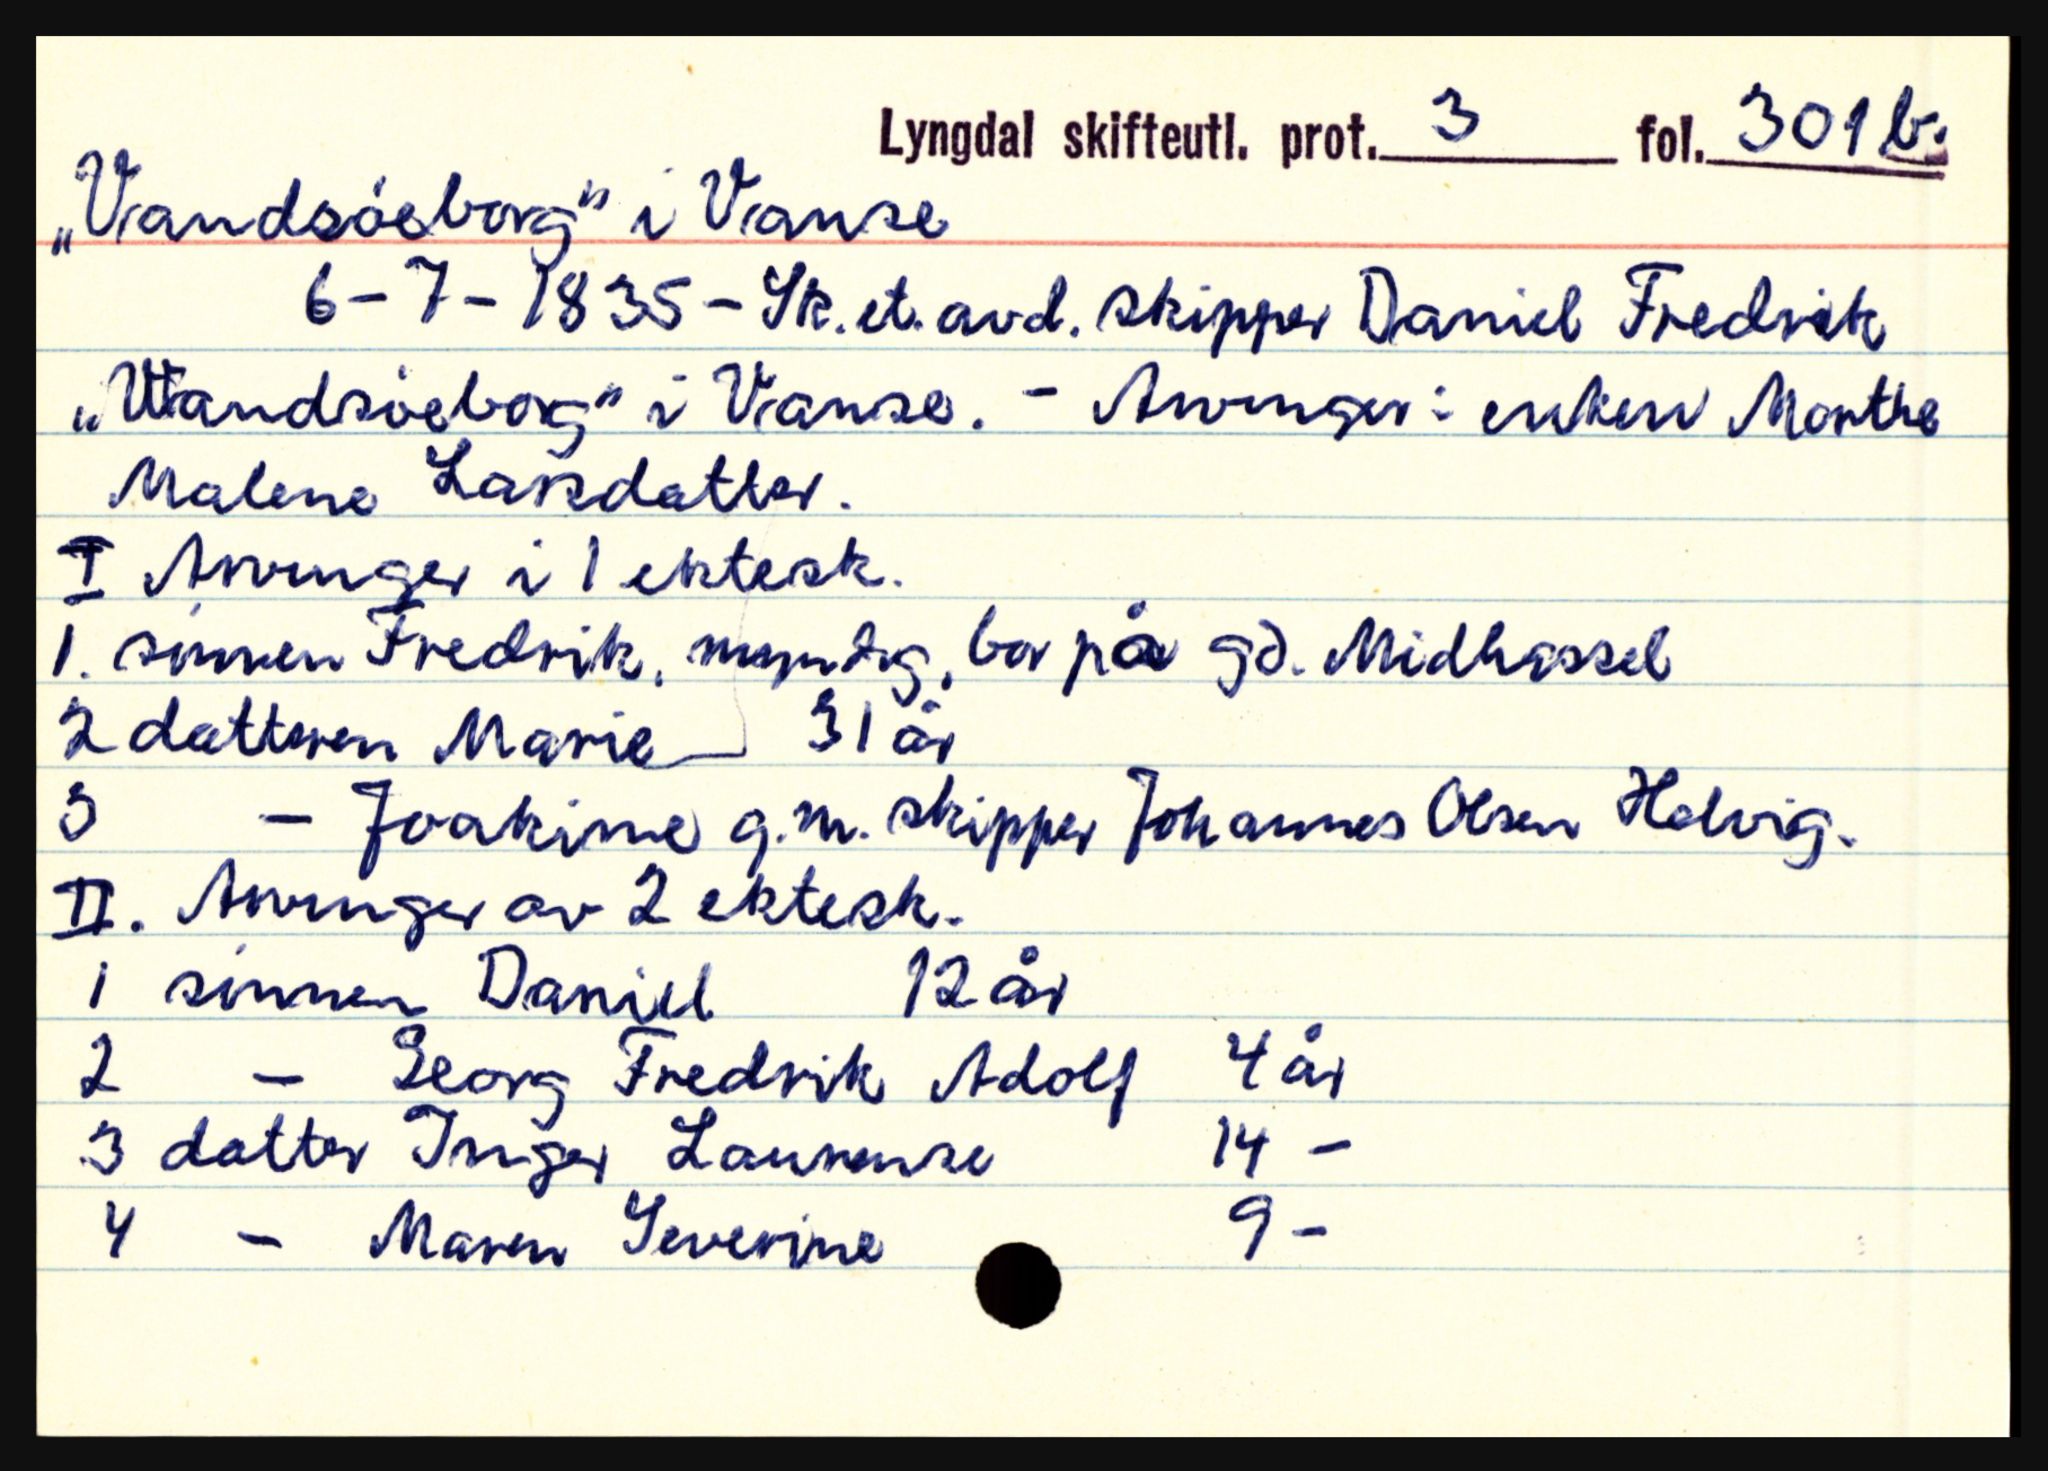 Lyngdal skifteutl. prot. 3 fol. 301 b.
„Vandsöeborg" i Vanse
6-7-1835 - Sk. et. avd. skipper Daniel Fredrik
„Wandsöeborg" i Vanse. - Arvinger: enken Marthe
Malene Larsdatter.
I Arvinger i 1 ektesk.
1. sönnen Fredrik, myndig, bor på gd. Midhassel
2 datteren Marie 31 år
3 - Joakime g.m. skipper Johannes Olsen Helvig.
II. Arvinger av 2 ektesk.
1 sönnen Daniel 12 år
2 - Georg Fredrik Adolf 4 år
3 datter Inger Laurense 14 -
4 - Maren Severine 9 -